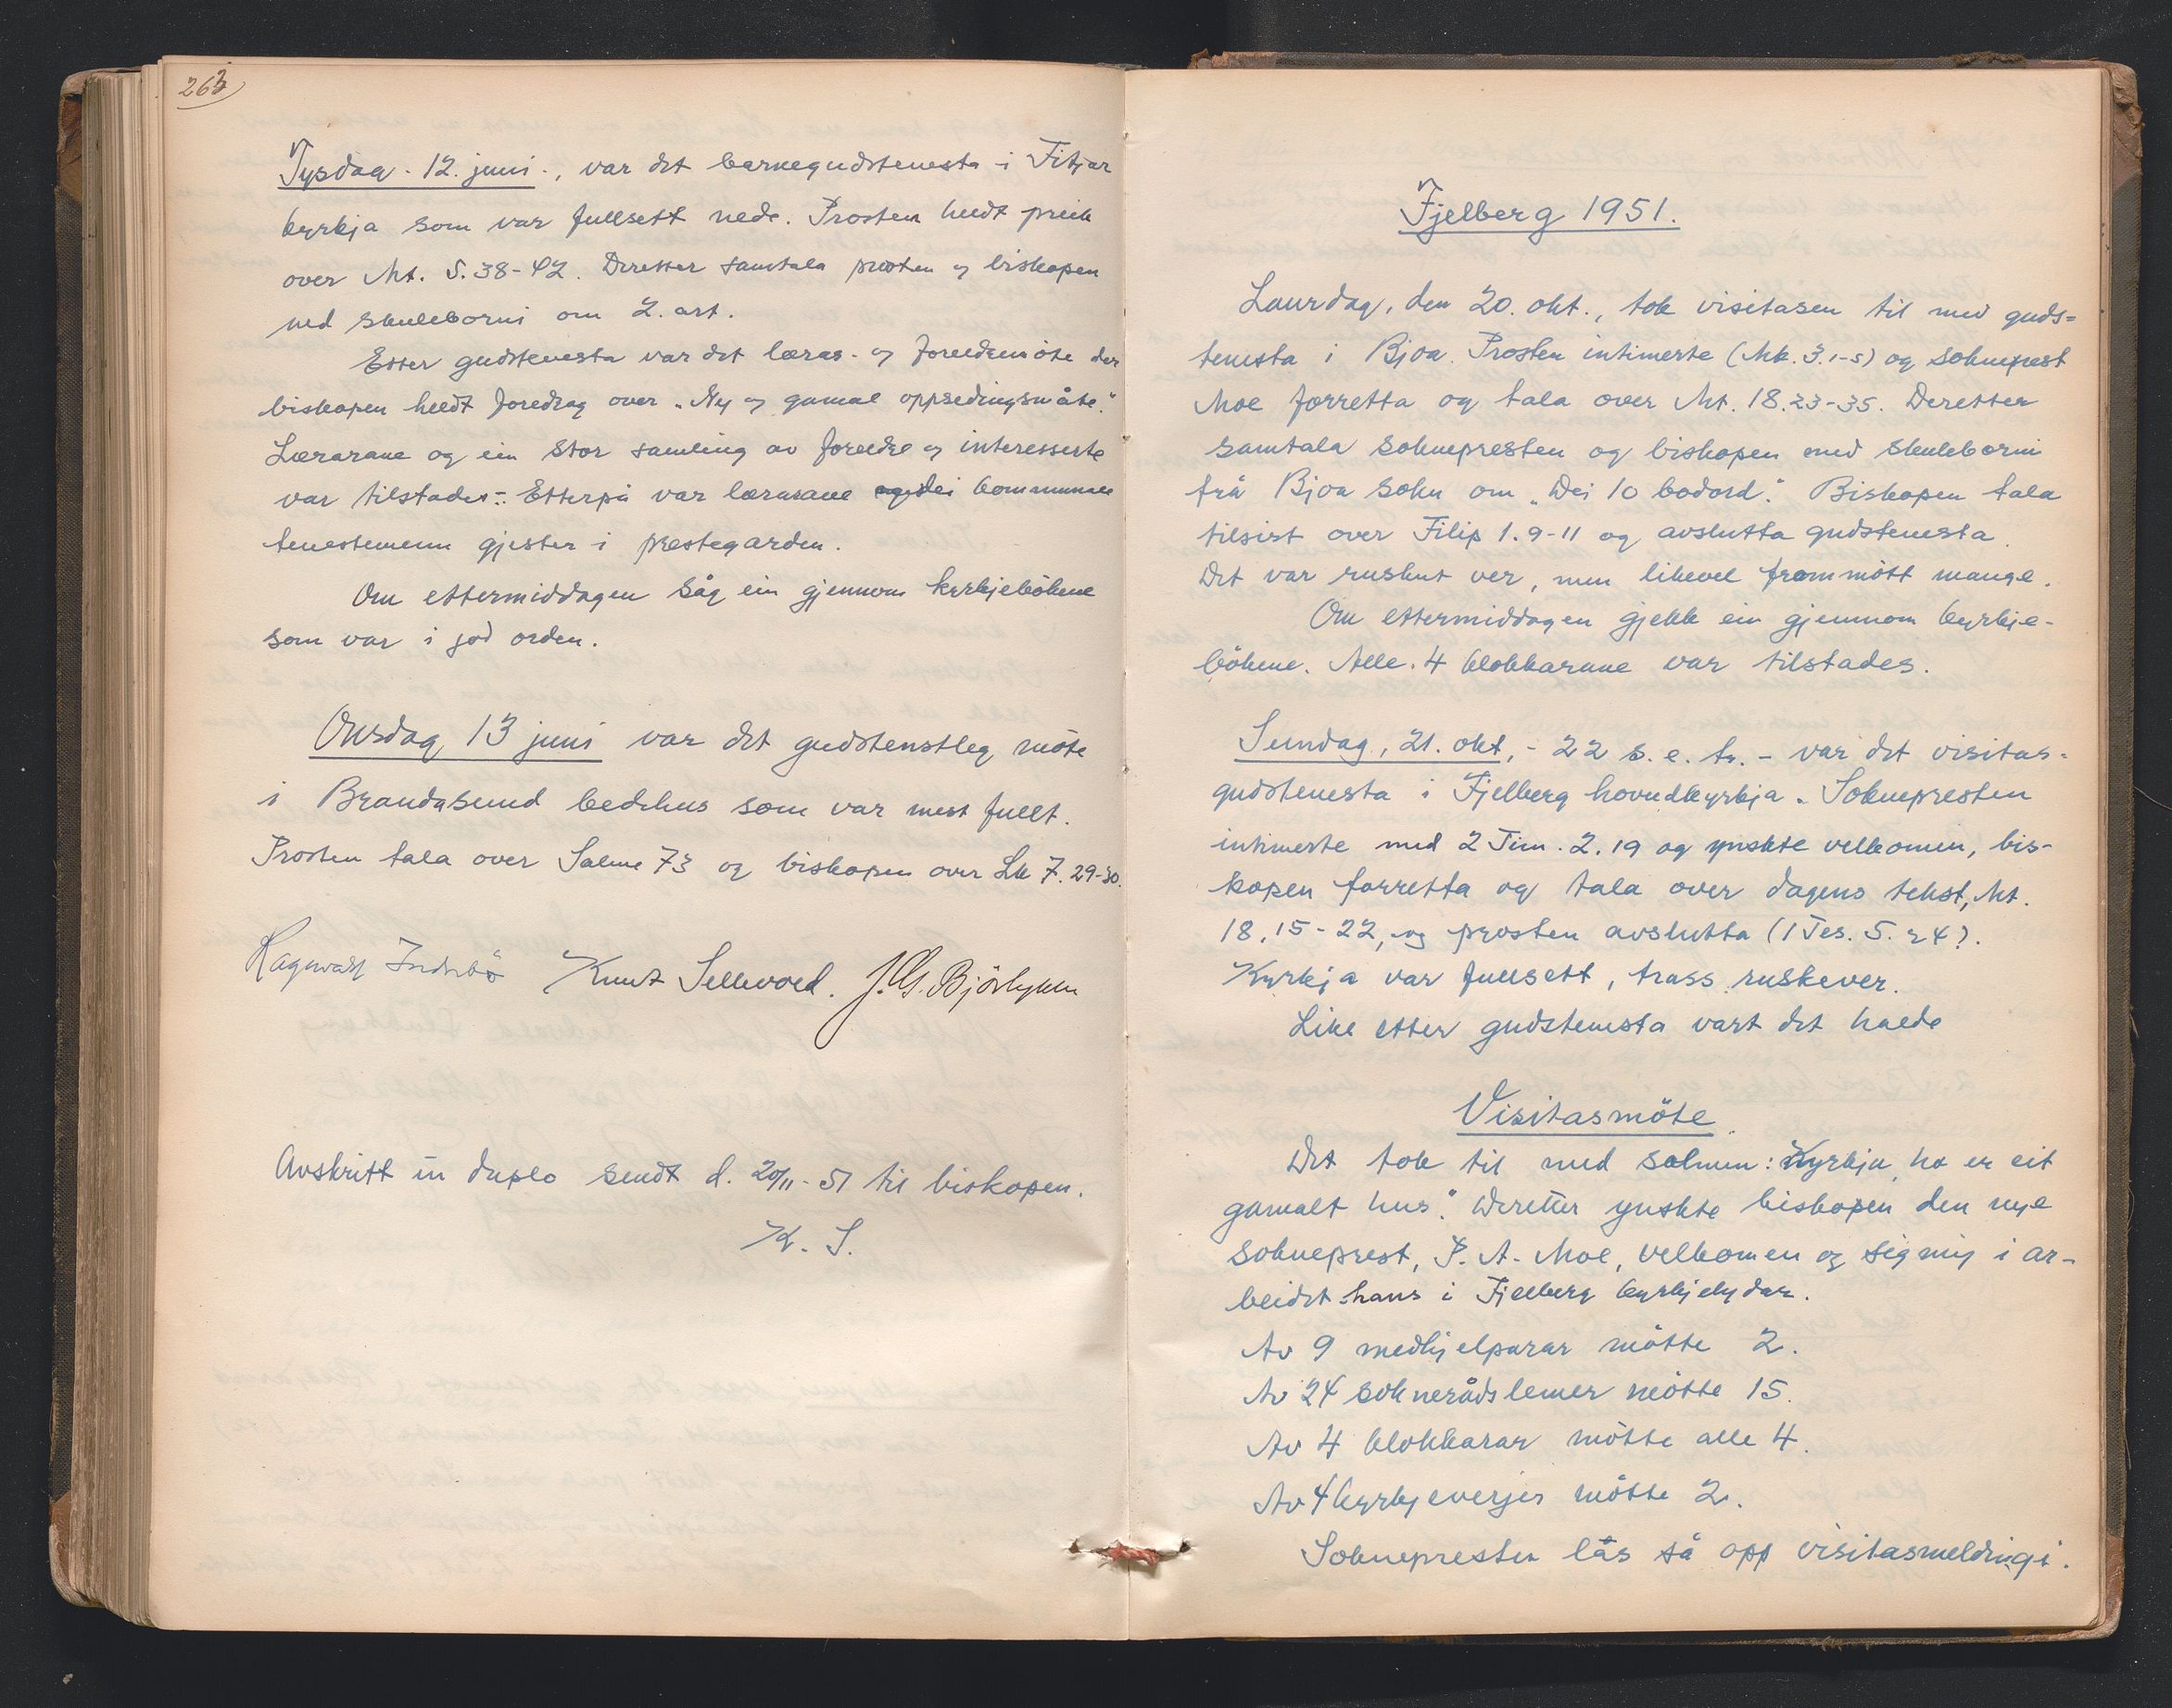 263
Tysdag. 12. juni., var det barnegudstenesta i Fitjar
kyrkja som var fullsett nede. Prosten heldt preik
over Mt. 5.38-42. Deretter samtala prosten og biskopen
med skuleborni om 2. art.
Etter gudstenesta var det lærar- og foreldremöte der
biskopen heldt foredrag over „Ny og gamal oppsedingsmåte."
Lærarane og ein stor samling av foreldre og interesserte
var tilstades. Etterpå var lærarane og dei kommunale
tenestemenn gjester i prestegarden.
Om ettermiddagen såg ein gjennom kyrkjebökene
som var i god orden.
Onsdag 13 juni var det gudstenstleg möte
i Brandasund bedehus som var mest fullt.
Prosten tala over Salme 73 og biskopen over Lk 7.29-30.
Ragnvald Indrebö Knut Sellevold. J. G. Björlykke
Avskrift in duplo sendt d. 20/11-51 til biskopen.
K. S.
Fjelberg 1951.
Laurdag, den 20. okt., tok visitasen til med guds=
tenesta i Bjoa. Prosten intimerte (Mk. 3.1-5) og sokneprest
Moe forretta og tala over Mt. 18.23-35. Deretter
samtala soknepresten og biskopen med skuleborni
frå Bjoa sokn om „Dei 10 bodord." Biskopen tala
tilsist over Filip 1.9-11 og avslutta gudstenesta.
Det var ruskut ver, men likevel frammött mange.
Om ettermiddagen gjekk ein gjennom kyrkje-
bökene. Alle 4 klokkarane var tilstades.
Sundag, 21. okt, - 22 s. e. tr. - var det visitas-
gudstenesta i Fjelberg hovudkyrkja. Soknepresten
intimerte med 2 Tim. 2.19 og ynskte velkomen, bis-
kopen forretta og tala over dagens tekst, Mt.
18,15-22, og prosten avslutta (1 Tes. 5.24).
Kyrkja var fullsett, trass ruskever.
Like etter gudstenesta vart det halde
Visitasmöte.
Det tok til med salmen: „Kyrkja ho er eit
gamalt hus". Deretter ynskte biskopen den nye
sokneprest, P. A. Moe, velkomen og signing i ar-
beidet hans i Fjelberg kyrkjelydar.
Av 9 medhjelparar mötte 2.
Av 24 soknerådslemer mötte 15.
Av 4 klokkarar mötte alle 4.
Av 4 kyrkjeverjer mötte 2.
Soknepresten lås så opp visitasmeldingi.